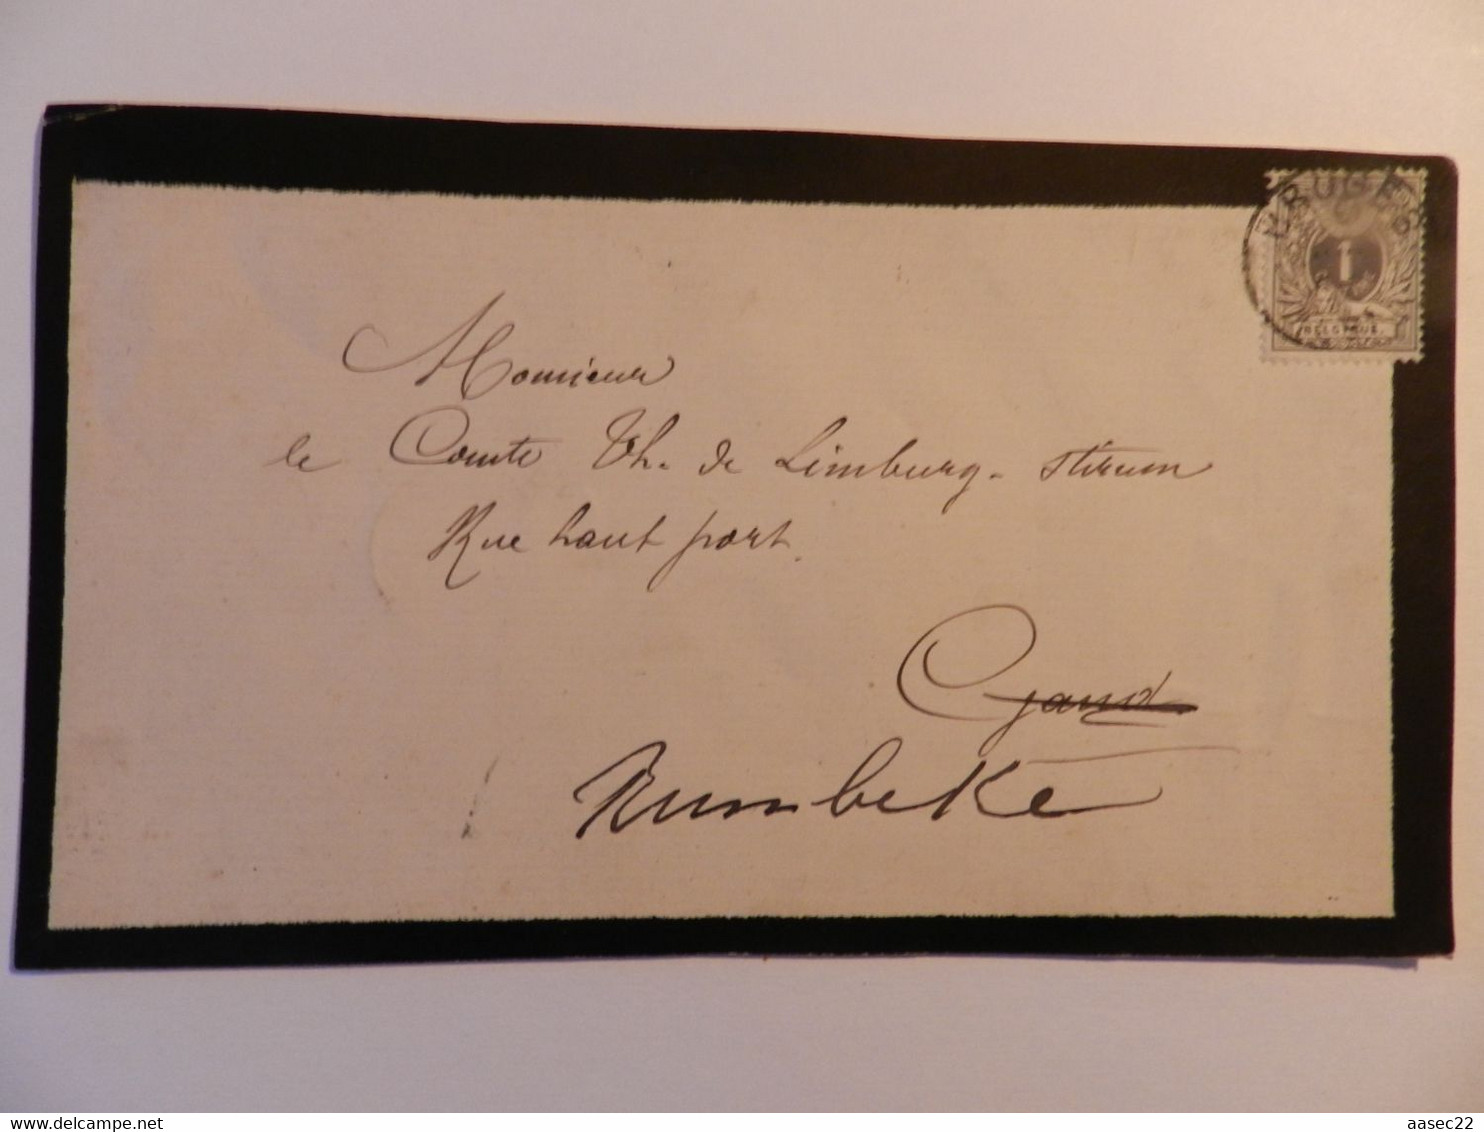 BRUGES
1
BELGIQUE.
Monsieur
le Comte Th. de Limburg-Stirum
Rue haut port.
Gand
Rumbeke
delcampe.net
aasec22